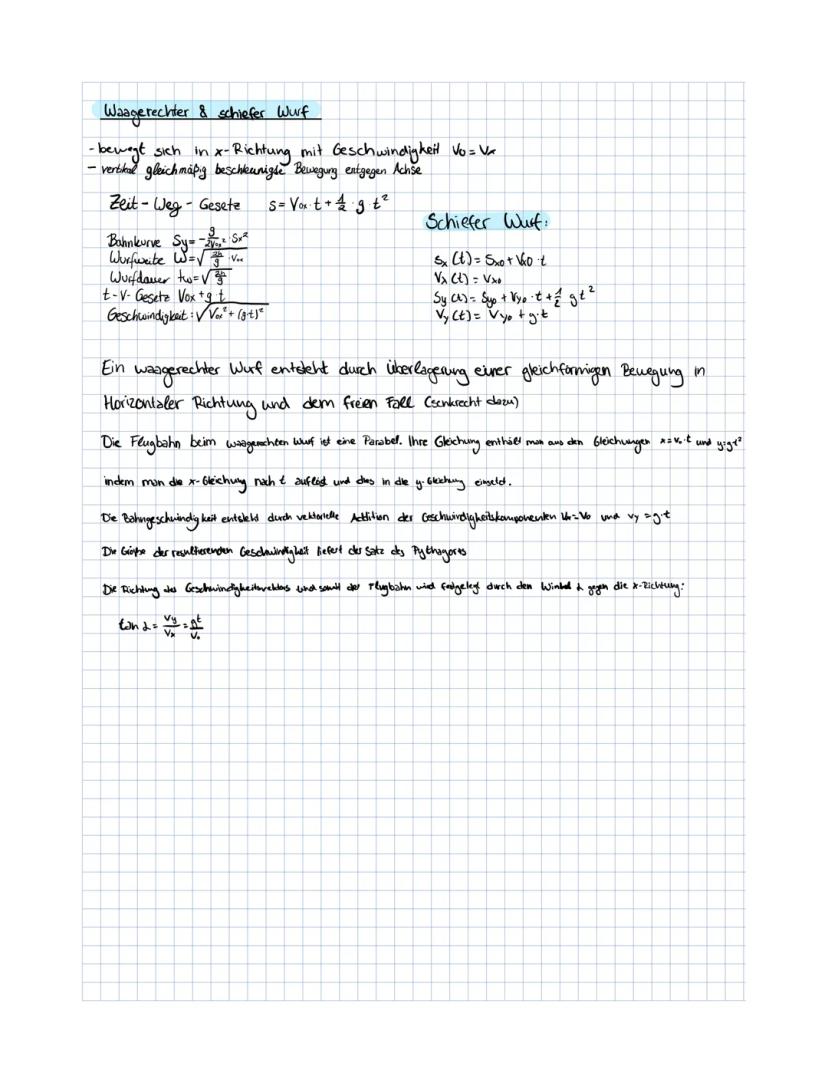 Waagerechter & schiefer Wurf
- bewegt sich in x-Richtung mit Geschwindigkeit V₀ = Vₓ
- vertikal gleichmäßig beschleunigte Bewegung entgegen Achse
Zeit - Weg - Gesetz S = V₀ₓ · t + 1/2 · g · t²
Bahnkurve Sy = - g/2V₀ₓ² · Sx²
Wurfweite W = √2h/g · V₀ₓ
Wurfdauer tw = √2h/g
t-v-Gesetz V₀ₓ + g t
Geschwindigkeit : √V₀ₓ² + (g·t)²
Schiefer Wurf:
Sx (t) = Sx0 + Vx0 · t
Vx (t) = Vx0
Sy (t) = Sy0 + Vy0 · t + 1/2 g t²
Vy (t) = Vy0 + g·t
Ein waagerechter Wurf entsteht durch Überlagerung einer gleichförmigen Bewegung in
Horizontaler Richtung und dem freien Fall (senkrecht dazu)
Die Flugbahn beim waagerechten Wurf ist eine Parabel. Ihre Gleichung enthält man aus den Gleichungen x = V₀·t und y = g·t²
indem man die x-Gleichung nach t auflöst und dies in die y-Gleichung einsetzt.
Die Bahngeschwindigkeit entsteht durch vektorielle Addition der Geschwindigkeitskomponenten Vx = V₀ und vy = g·t
Die Größe der resultierenden Geschwindigkeit liefert der Satz des Pythagoras
Die Richtung des Geschwindigkeitsvektors und somit der Flugbahn wird festgelegt durch den Winkel α gegen die x-Richtung:
tan α = Vy/Vx = gt/V₀